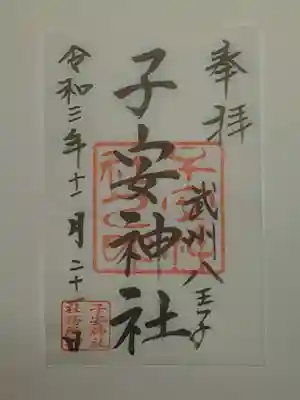 奉拝
武州八王子
子安神社
令和三年十一月二十一日
子安神社